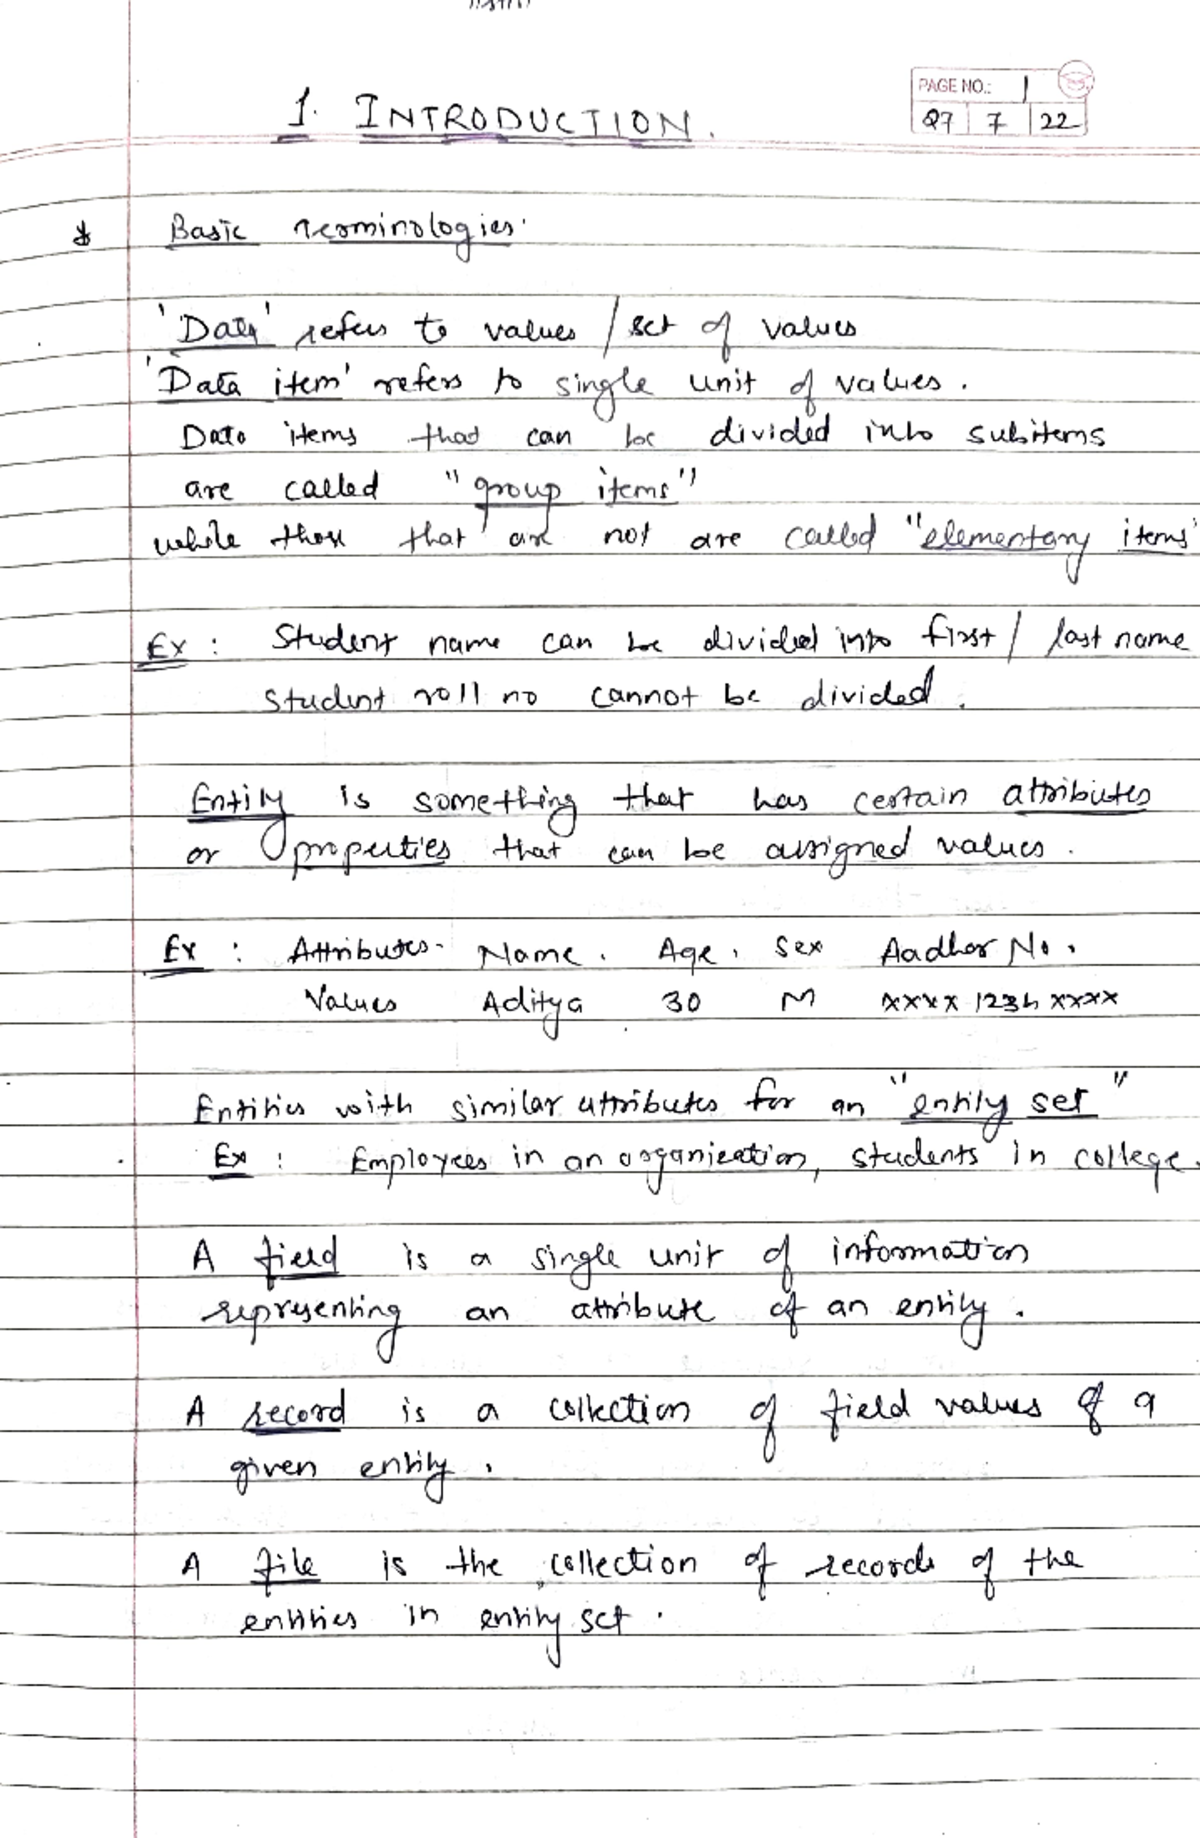 1. INTRODUCTION.
PAGE NO.: 1
27 7 22
* Basic terminologies.
'Data' refers to values / set of values
'Data item' refers to single unit of values.
Data items that can be divided into subitems
are called "group items"
while those that are not are called "elementary items"
Ex : Student name can be divided into first / last name
Student roll no cannot be divided.
Entity is something that has certain attributes
or properties that can be assigned values.
Ex : Attributes- Name. Age. Sex Aadhar No.
Values Aditya 30 M xxxx 1234 xxxx
Entities with similar attributes for an "entity set"
Ex : Employees in an organization, students in college.
A field is a single unit of information
representing an attribute of an entity.
A record is a collection of field values of a
given entity.
A file is the collection of records of the
entities in entity set.